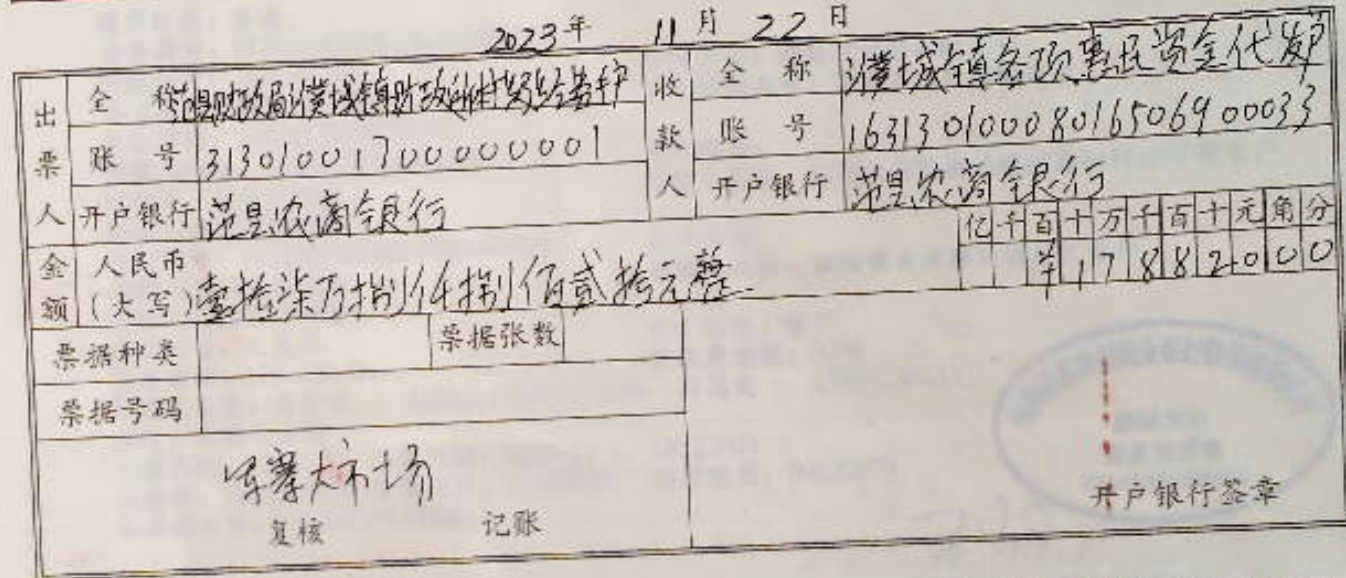 2023年 11月 22日
出票人 全称 范县财政局濮城镇财政所村级经费专户 收款人 全称 濮城镇各项惠民资金代发户
账号 31301001700000001 账号 16313010008016506900033
开户银行 范县农商银行 开户银行 范县农商银行
金额 人民币(大写) 壹拾柒万捌仟捌佰贰拾元整 亿千百十万千百十元角分
¥17882000
票据种类 票据张数
票据号码
大市场
复核 记账 开户银行签章